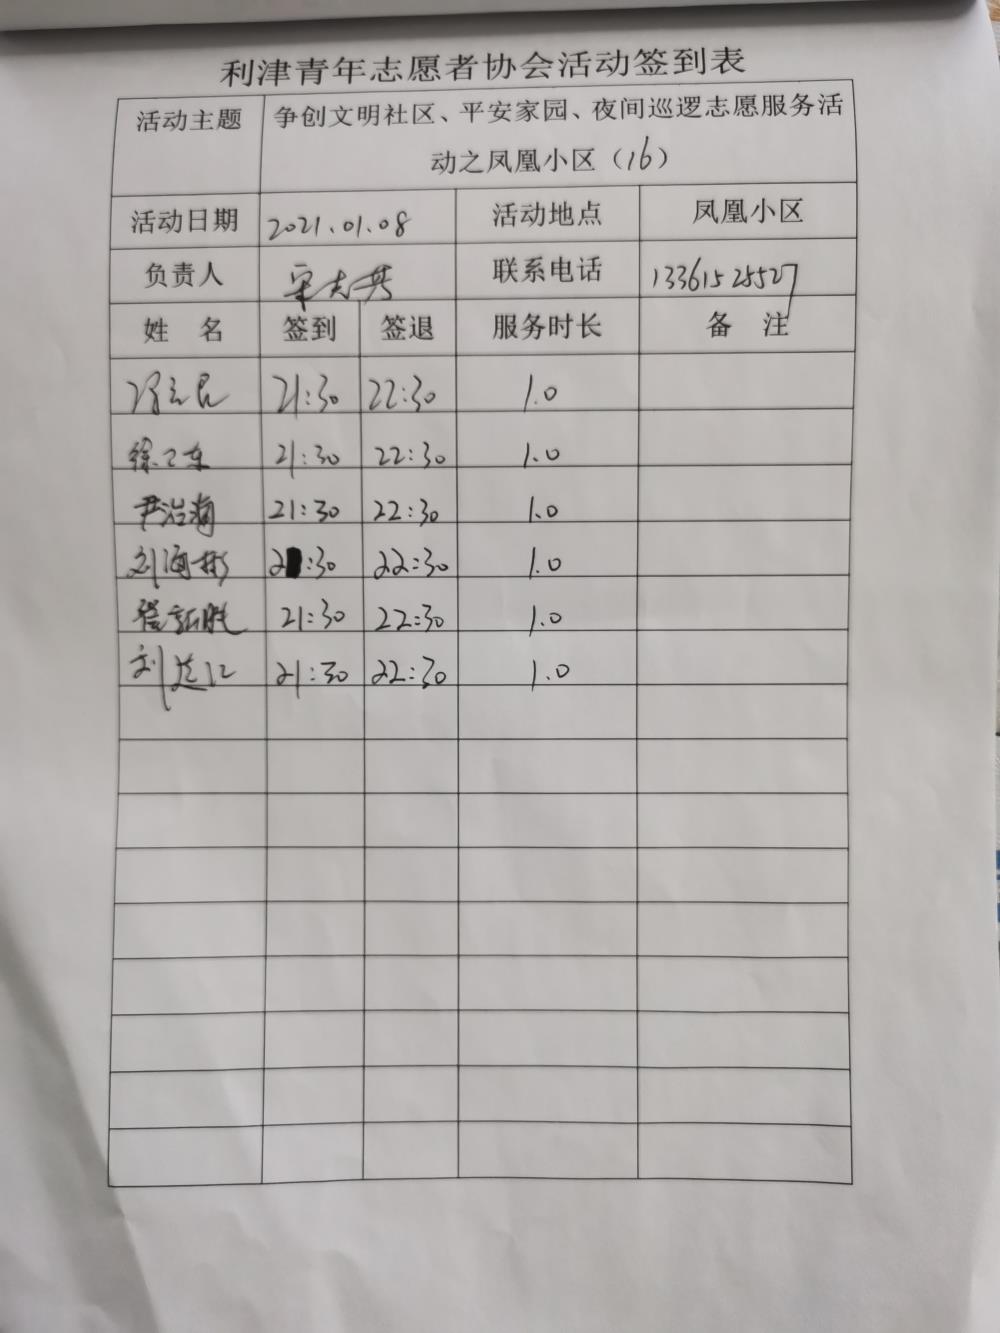 利津青年志愿者协会活动签到表
活动主题 争创文明社区、平安家园、夜间巡逻志愿服务活
动之凤凰小区（16）
活动日期 2021.01.08 活动地点 凤凰小区
负责人 联系电话 13361525527
姓 名 签到 签退 服务时长 备 注
21:30 22:30 1.0
21:30 22:30 1.0
尹治海 21:30 22:30 1.0
刘海彬 2:30 22:30 1.0
21:30 22:30 1.0
刘 21:30 22:30 1.0